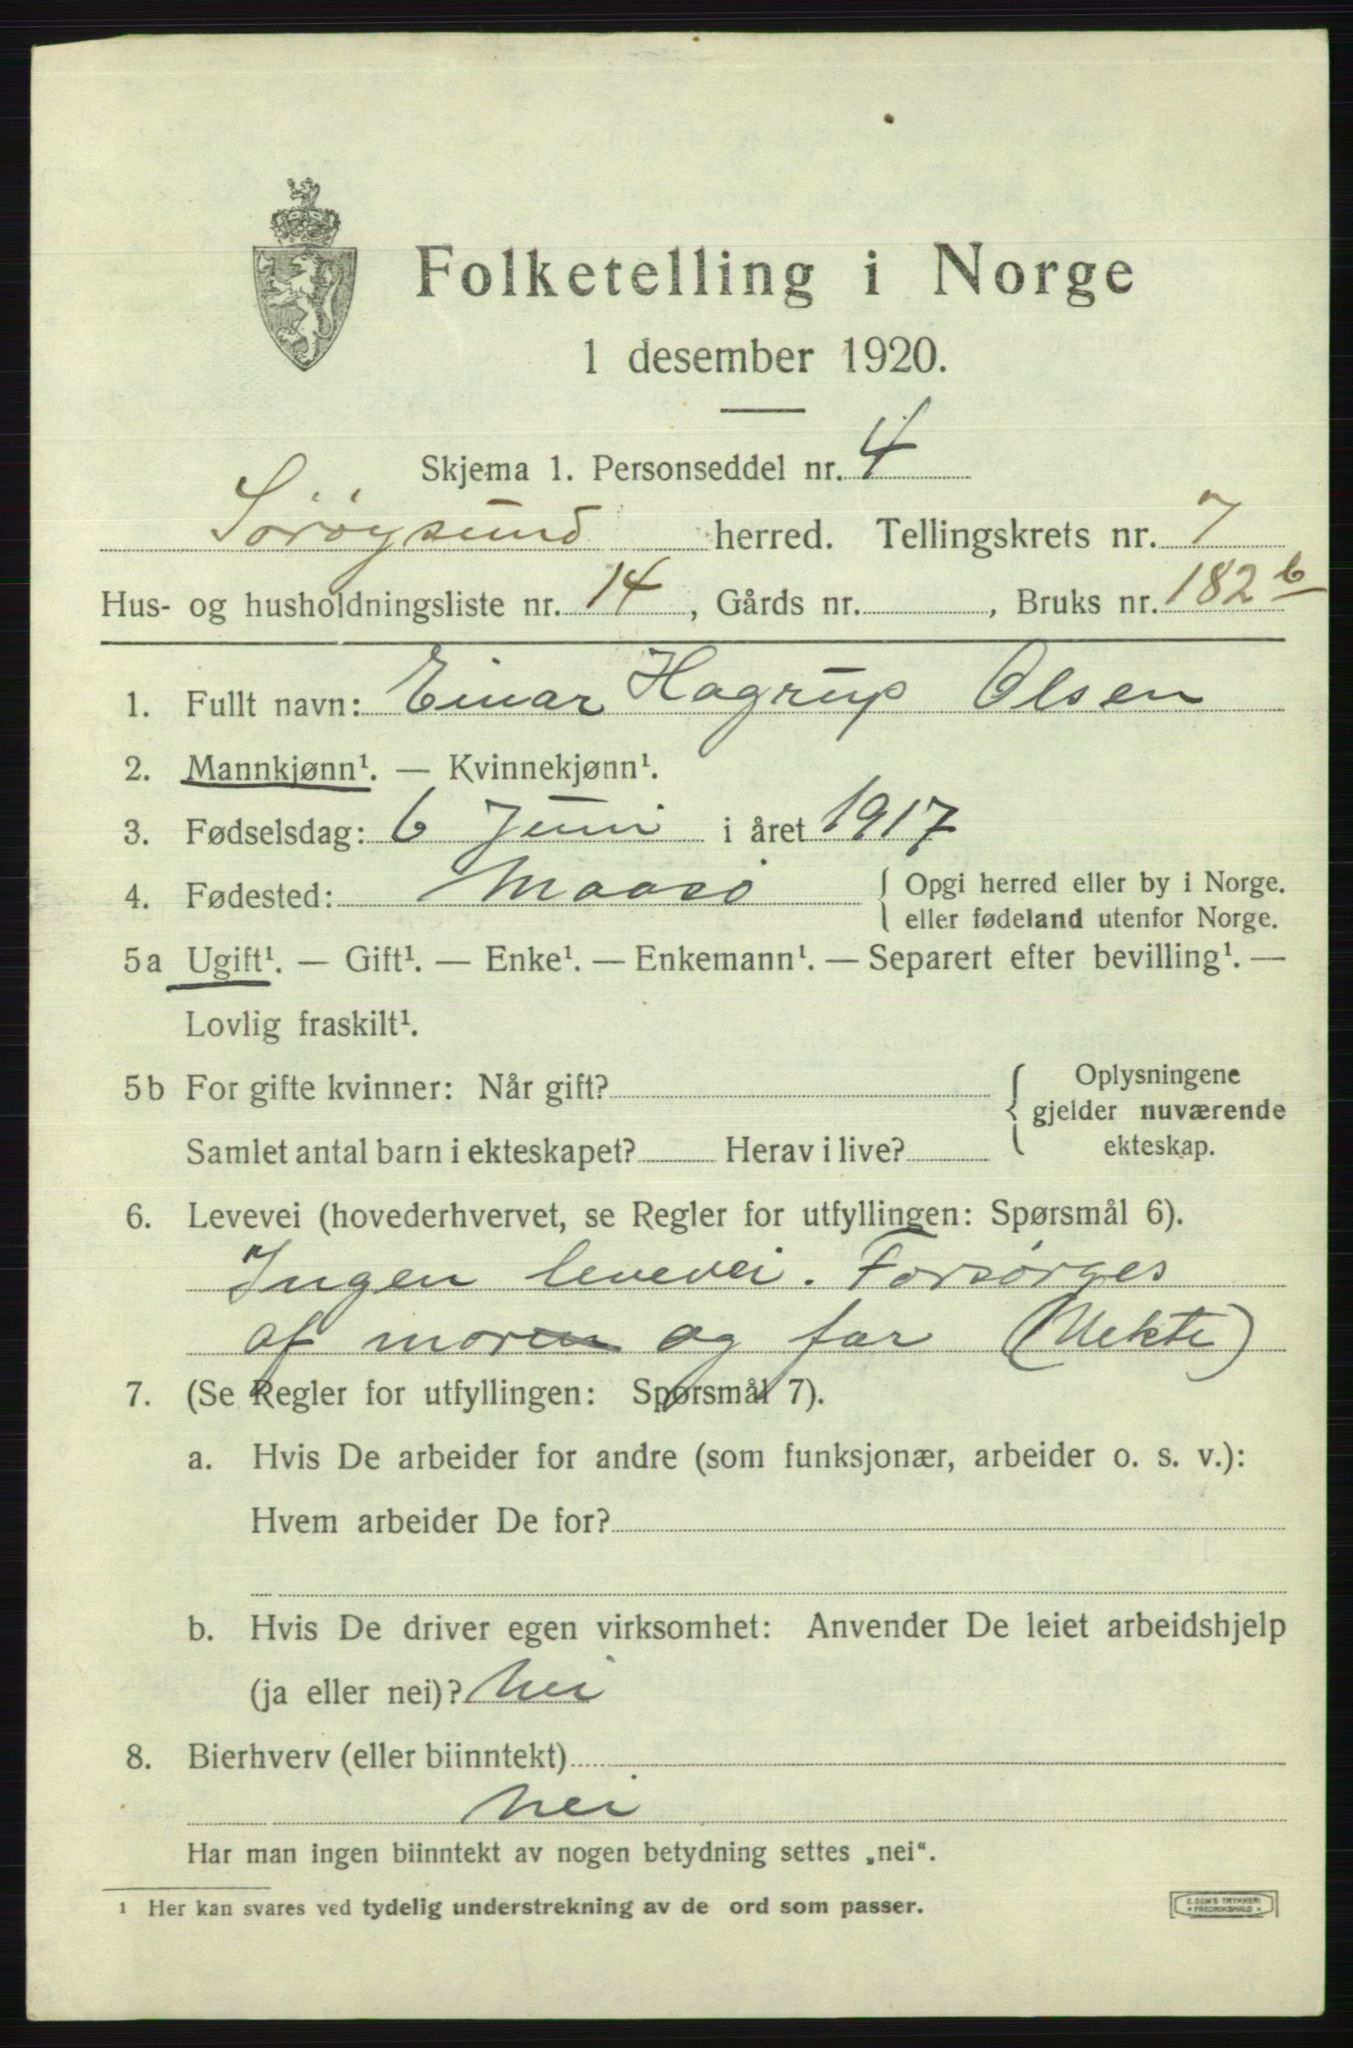 Folketelling i Norge
1 desember 1920.
Skjema 1. Personseddel nr. 4
Sørøysund herred. Tellingskrets nr. 7
Hus- og husholdningsliste nr. 14, Gårds nr. , Bruks nr. 182 b
1. Fullt navn: Einar Hagrup Olsen
2. Mannkjønn¹. — Kvinnekjønn¹.
3. Fødselsdag: 6 Juni i året 1917
4. Fødested: Maasø { Opgi herred eller by i Norge.
eller fødeland utenfor Norge.
5a Ugift¹. — Gift¹. — Enke¹. — Enkemann¹. — Separert efter bevilling¹. —
Lovlig fraskilt¹.
5b For gifte kvinner: Når gift? { Oplysningene
gjelder nuværende
Samlet antal barn i ekteskapet? Herav i live? ekteskap.
6. Levevei (hovederhvervet, se Regler for utfyllingen: Spørsmål 6).
Ingen levevei. Forsørges
af moren og far
7. (Se Regler for utfyllingen: Spørsmål 7).
a. Hvis De arbeider for andre (som funksjonær, arbeider o. s. v.):
Hvem arbeider De for?
b. Hvis De driver egen virksomhet: Anvender De leiet arbeidshjelp
(ja eller nei)? Nei
8. Bierhverv (eller biinntekt)
Nei
Har man ingen biinntekt av nogen betydning settes „nei“.
¹ Her kan svares ved tydelig understrekning av de ord som passer.
E. SEM'S TRYKKERI
• FREDRIKSHALD •